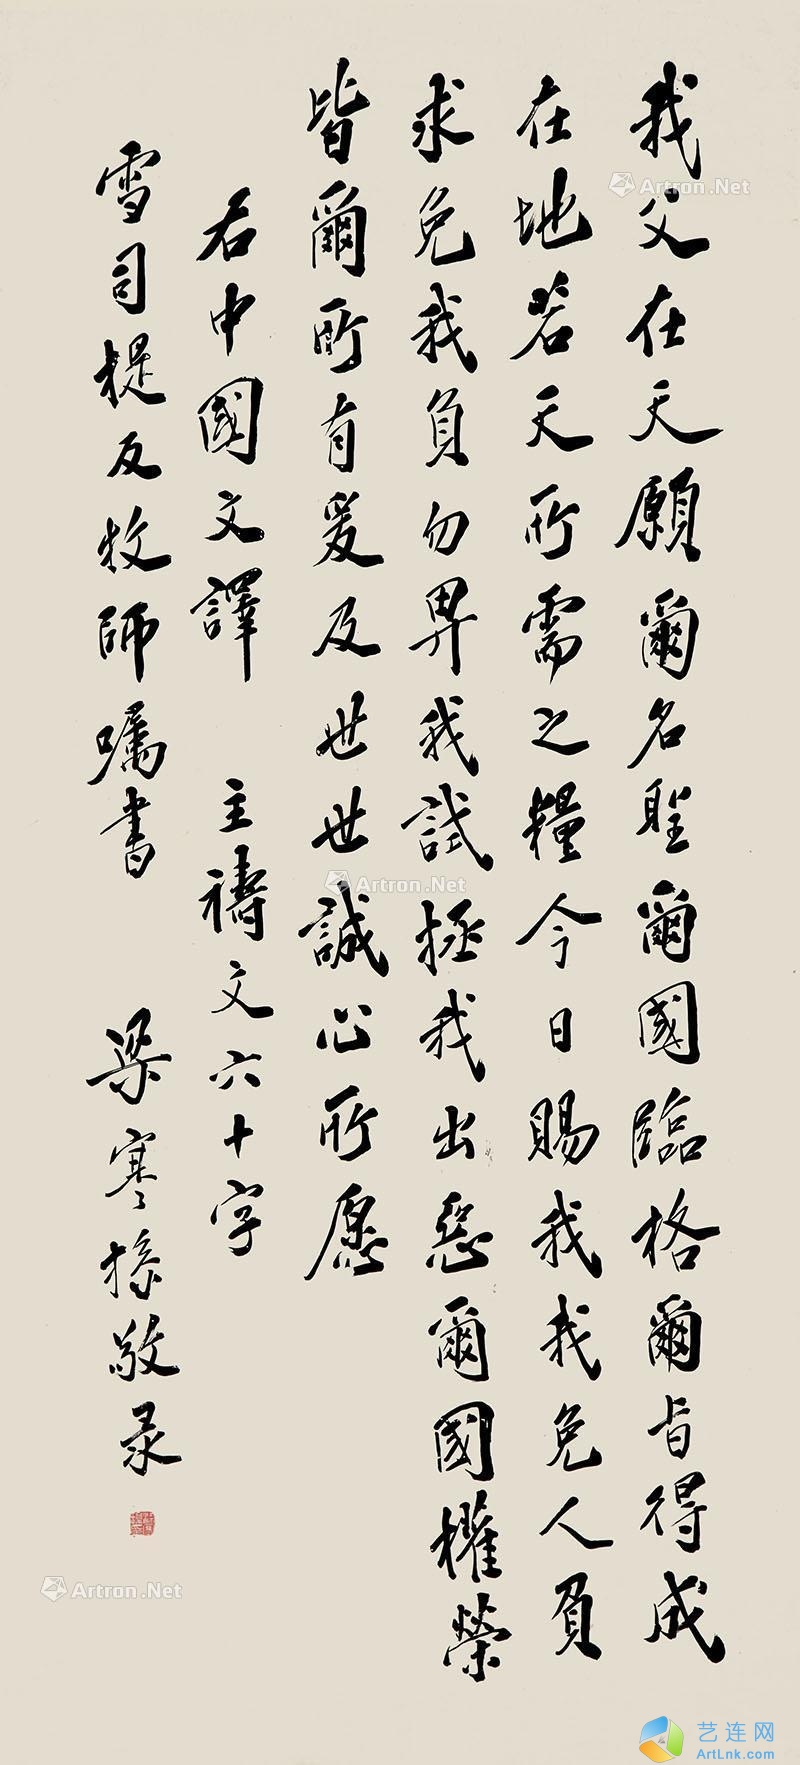 我父在天願爾名聖爾國臨格爾旨得成
在地若天所需之糧今日賜我我免人負
求免我負勿畀我試拯我出惡爾國權榮
皆爾所有爰及世世誠心所愿
右中國文譯 主禱文六十字
雪司提反牧師嘱書 梁寒操敬录
Artron.Net
Artron.Net
Artron.Net
艺连网
ArtLnk.com